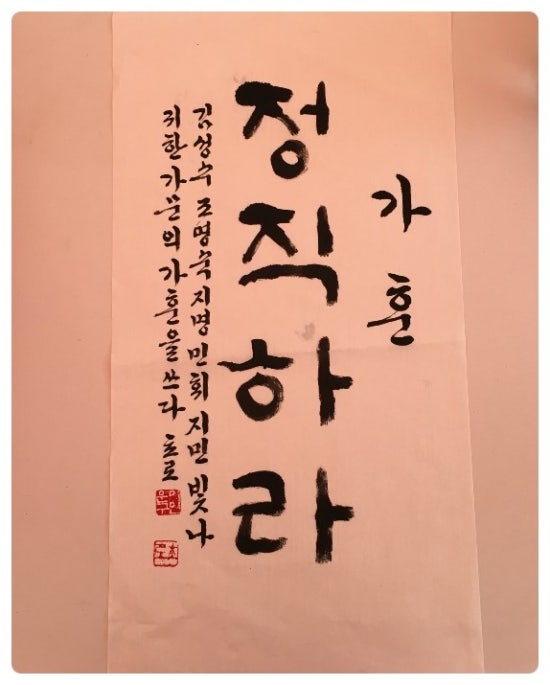 가훈
정직하라
김성수 조명숙 지명 민회 지민 빛나
귀한 가문의 가훈을 쓰다 초로